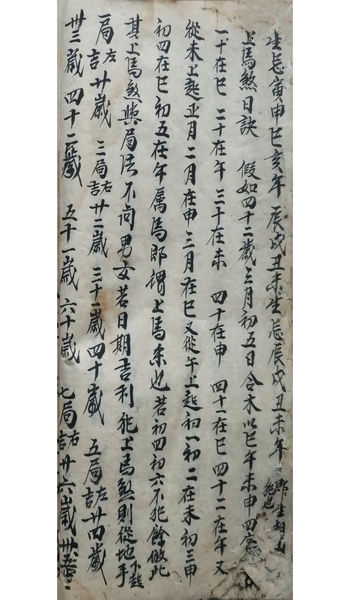 生忌寅申巳亥年 辰戌丑未生忌辰戌丑未年
上馬煞日訣 假如四十二歲三月初五日合木以巳午未申四
一十在巳 二十在午 三十在未 四十在申 四十一在巳 四十二在午 又
從未上起正月 二月在申 三月在巳 又從午上起初一 初二在未 初三申
初四在巳 初五在午 屬馬即謂上馬末也 若初四初六不犯餘倣此
其上馬煞與局法不向男女若日期吉利 犯上馬煞則從地下起手
一局左吉 廿歲 三局右吉 廿二歲 三十一歲 四十歲 五局左吉 廿四歲
卅三歲 四十二歲 五十一歲 六十歲 七局右吉 廿六歲